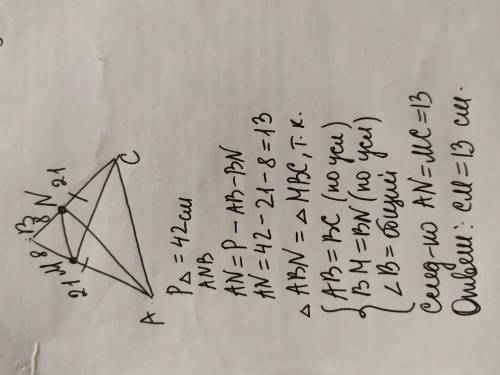 B
8
8
M
N
21
21
A
C
P△ = 42см
ANB
AN = P - AB - BN
AN = 42 - 21 - 8 = 13
△ ABN = △ MBC, т.к.
{ AB = BC (по усл)
{ BM = BN (по усл)
{ ∠B = общий
след-но AN = MC = 13
Ответ: CM = 13 см.